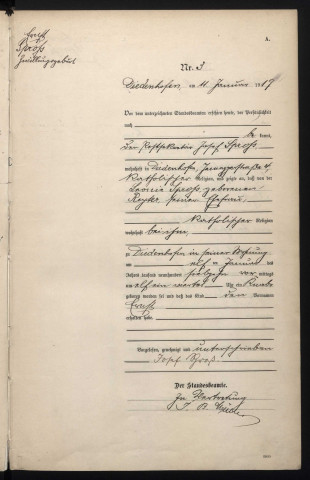 Ernst
Spross
Zwillingsgeburt
A.
Nr. 3
Diedenhofen, am 11. Januar 1917
Vor dem unterzeichneten Standesbeamten erschien heute, der Persönlichkeit
nach
be kannt,
der Postsekretär Josef Spross
wohnhaft in Diedenhofen,
katholischer Religion, und zeigte an, daß von der
Leonie Spross geborenen
seiner Ehefrau
katholischer Religion
wohnhaft bei ihm
zu Diedenhofen in seiner Wohnung
am elf ten Januar des
Jahres tausend neunhundert siebzehn vor mittags
um elf ein viertel Uhr ein Knabe
geboren worden sei und daß das Kind den Vornamen
Ernst
erhalten habe.
Vorgelesen, genehmigt und unterschrieben
Josef Spross
Der Standesbeamte.
In Vertretung